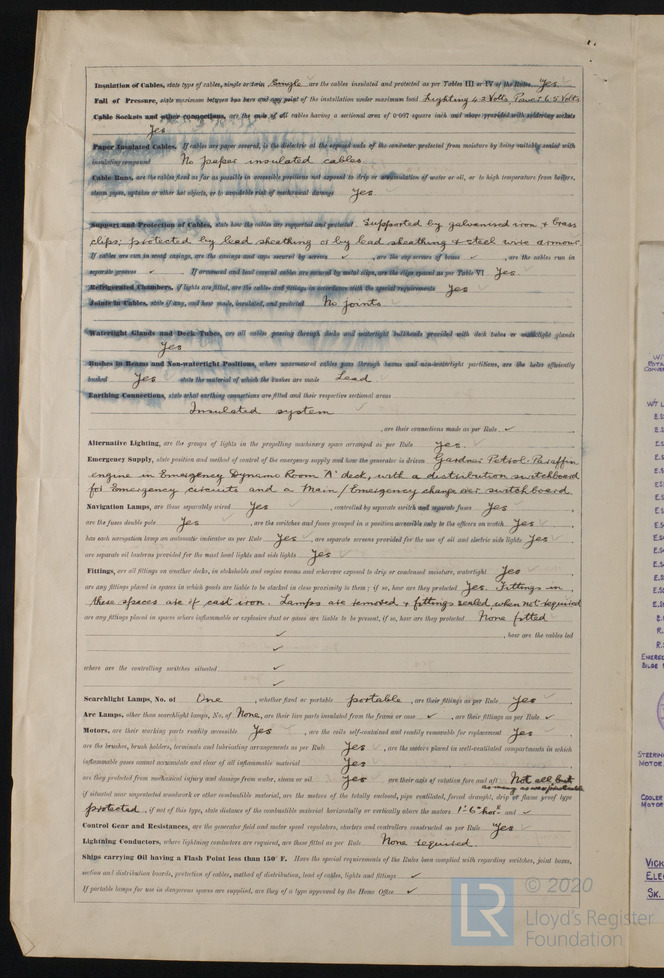 Insulation of Cables, state type of cables, single or twin Single are the cables insulated and protected as per Tables III or IV of the Rules Yes
Fall of Pressure, state maximum between bus bars and any point of the installation under maximum load Lighting 4.2 Volts, Power 6.5 Volts
Cable Sockets and other connections, are the ends of all cables having a sectional area of 0·007 square inch and above provided with soldering sockets
Yes
Paper Insulated Cables. If cables are paper covered, is the dielectric at the exposed ends of the conductor protected from moisture by being suitably sealed with
insulating compound No paper insulated cables
Cable Runs, are the cables fixed as far as possible in accessible positions not exposed to drip or accumulation of water or oil, or to high temperature from boilers,
steam pipes, uptakes or other hot objects, or to avoidable risk of mechanical damage Yes
Support and Protection of Cables, state how the cables are supported and protected Supported by galvanised iron & brass
clips; protected by lead sheathing or by lead sheathing & steel wire armour
If cables are run in wood casings, are the casings and caps secured by screws ✓ , are the cap screws of brass ✓ , are the cables run in
separate grooves ✓ If armoured and lead covered cables are secured by metal clips, are the clips spaced as per Table VI Yes
Refrigerated Chambers, if lights are fitted, are the cables and fittings in accordance with the special requirements Yes
Joints in Cables, state if any, and how made, insulated, and protected No joints
Watertight Glands and Deck Tubes, are all cables passing through decks and watertight bulkheads provided with deck tubes or watertight glands
Yes
Bushes in Beams and Non-watertight Positions, where unarmoured cables pass through beams and non-watertight partitions, are the holes efficiently
bushed Yes state the material of which the bushes are made Lead
Earthing Connections, state what earthing connections are fitted and their respective sectional areas
Insulated system ✓
, are their connections made as per Rule ✓
Alternative Lighting, are the groups of lights in the propelling machinery space arranged as per Rule Yes.
Emergency Supply, state position and method of control of the emergency supply and how the generator is driven Gardner Petrol-Paraffin
engine in Emergency Dynamo Room 'A' deck, with a distribution switchboard
for Emergency circuits and a Main/Emergency change over switchboard.
Navigation Lamps, are these separately wired Yes , controlled by separate switch and separate fuses Yes
are the fuses double pole Yes , are the switches and fuses grouped in a position accessible only to the officers on watch Yes
has each navigation lamp an automatic indicator as per Rule Yes , are separate screens provided for the use of oil and electric side lights Yes
are separate oil lanterns provided for the mast head lights and side lights Yes
Fittings, are all fittings on weather decks, in stokeholds and engine rooms and wherever exposed to drip or condensed moisture, watertight Yes
are any fittings placed in spaces in which goods are liable to be stacked in close proximity to them; if so, how are they protected Yes. Fittings in
these spaces are of cast iron. Lamps are removed & fittings sealed, when not required
are any fittings placed in spaces where inflammable or explosive dust or gases are liable to be present, if so, how are they protected None fitted
✓ , how are the cables led
✓
where are the controlling switches situated ✓
✓
Searchlight Lamps, No. of One , whether fixed or portable portable , are their fittings as per Rule Yes ✓
Arc Lamps, other than searchlight lamps, No. of None, are their live parts insulated from the frame or case ✓ , are their fittings as per Rule ✓
Motors, are their working parts readily accessible Yes , are the coils self-contained and readily removable for replacement Yes
are the brushes, brush holders, terminals and lubricating arrangements as per Rule Yes , are the motors placed in well-ventilated compartments in which
inflammable gases cannot accumulate and clear of all inflammable material Yes
are they protected from mechanical injury and damage from water, steam or oil Yes , are their axis of rotation fore and aft Not all, but
as many as was practicable
if situated near unprotected woodwork or other combustible material, are the motors of the totally enclosed, pipe ventilated, forced draught, drip or flame proof type
protected, if not of this type, state distance of the combustible material horizontally or vertically above the motors 1'-6" hor'l and ✓
Control Gear and Resistances, are the generator field and motor speed regulators, starters and controllers constructed as per Rule Yes
Lightning Conductors, where lightning conductors are required, are these fitted as per Rule None required.
Ships carrying Oil having a Flash Point less than 150° F. Have the special requirements of the Rules been complied with regarding switches, joint boxes,
section and distribution boards, protection of cables, method of distribution, lead of cables, lights and fittings ✓
If portable lamps for use in dangerous spaces are supplied, are they of a type approved by the Home Office ✓
© 2020
LR
Lloyd's Register
Foundation